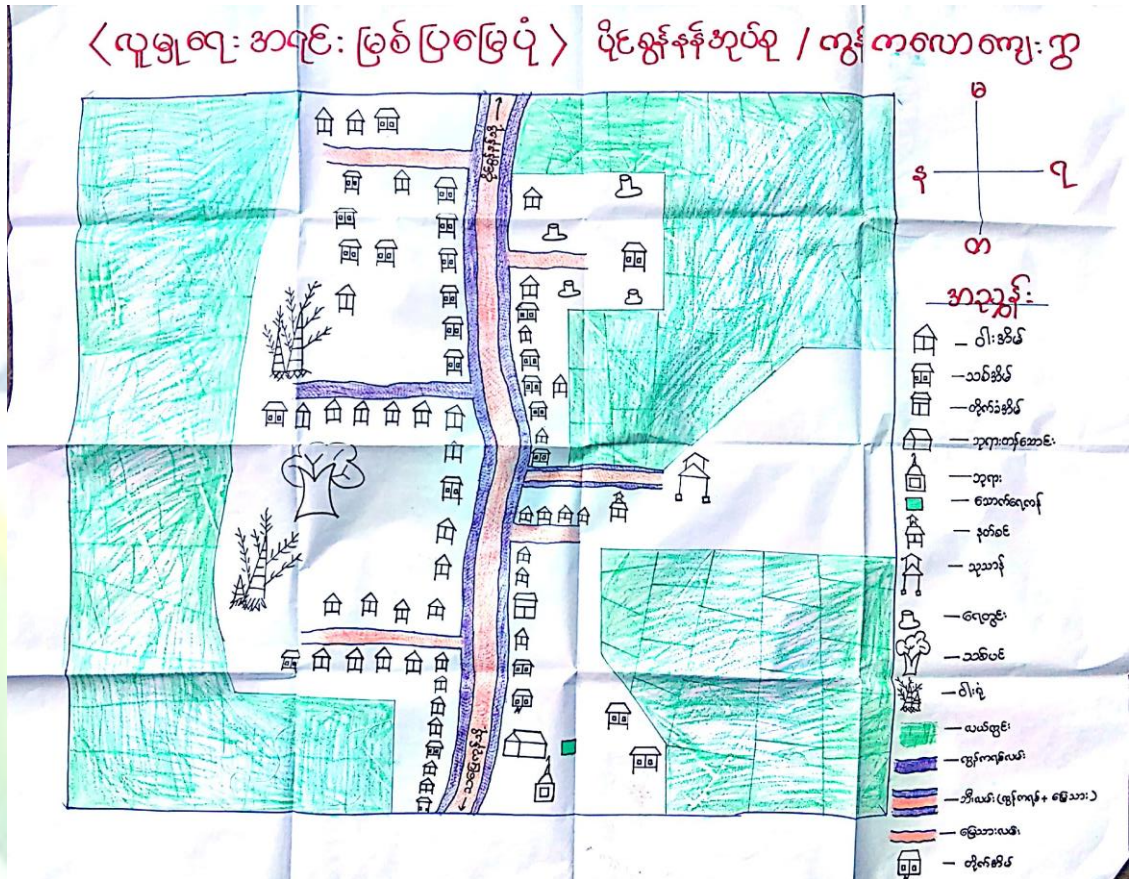 <လူမှုရေး အရင်းမြစ်ပြမြေပုံ> ပိုင်ရွန်နန်အုပ်စု / ကွန်ကလောကျေးရွာ
မ
န
ရ
တ
အညွှန်း
– ဝါးအိမ်
– သစ်အိမ်
– တိုက်ခံအိမ်
– ဘုရားတန်ဆောင်း
– ဘုရား
– သောက်ရေကန်
– နတ်စင်
– သုသာန်
– ရေတွင်း
– သစ်ပင်
– ဝါးရုံ
– လယ်ကွင်း
– ကွန်ကရစ်လမ်း
– ဘီးလမ်း (ကွန်ကရစ် + မြေသား)
– မြေသားလမ်း
– တိုက်အိမ်